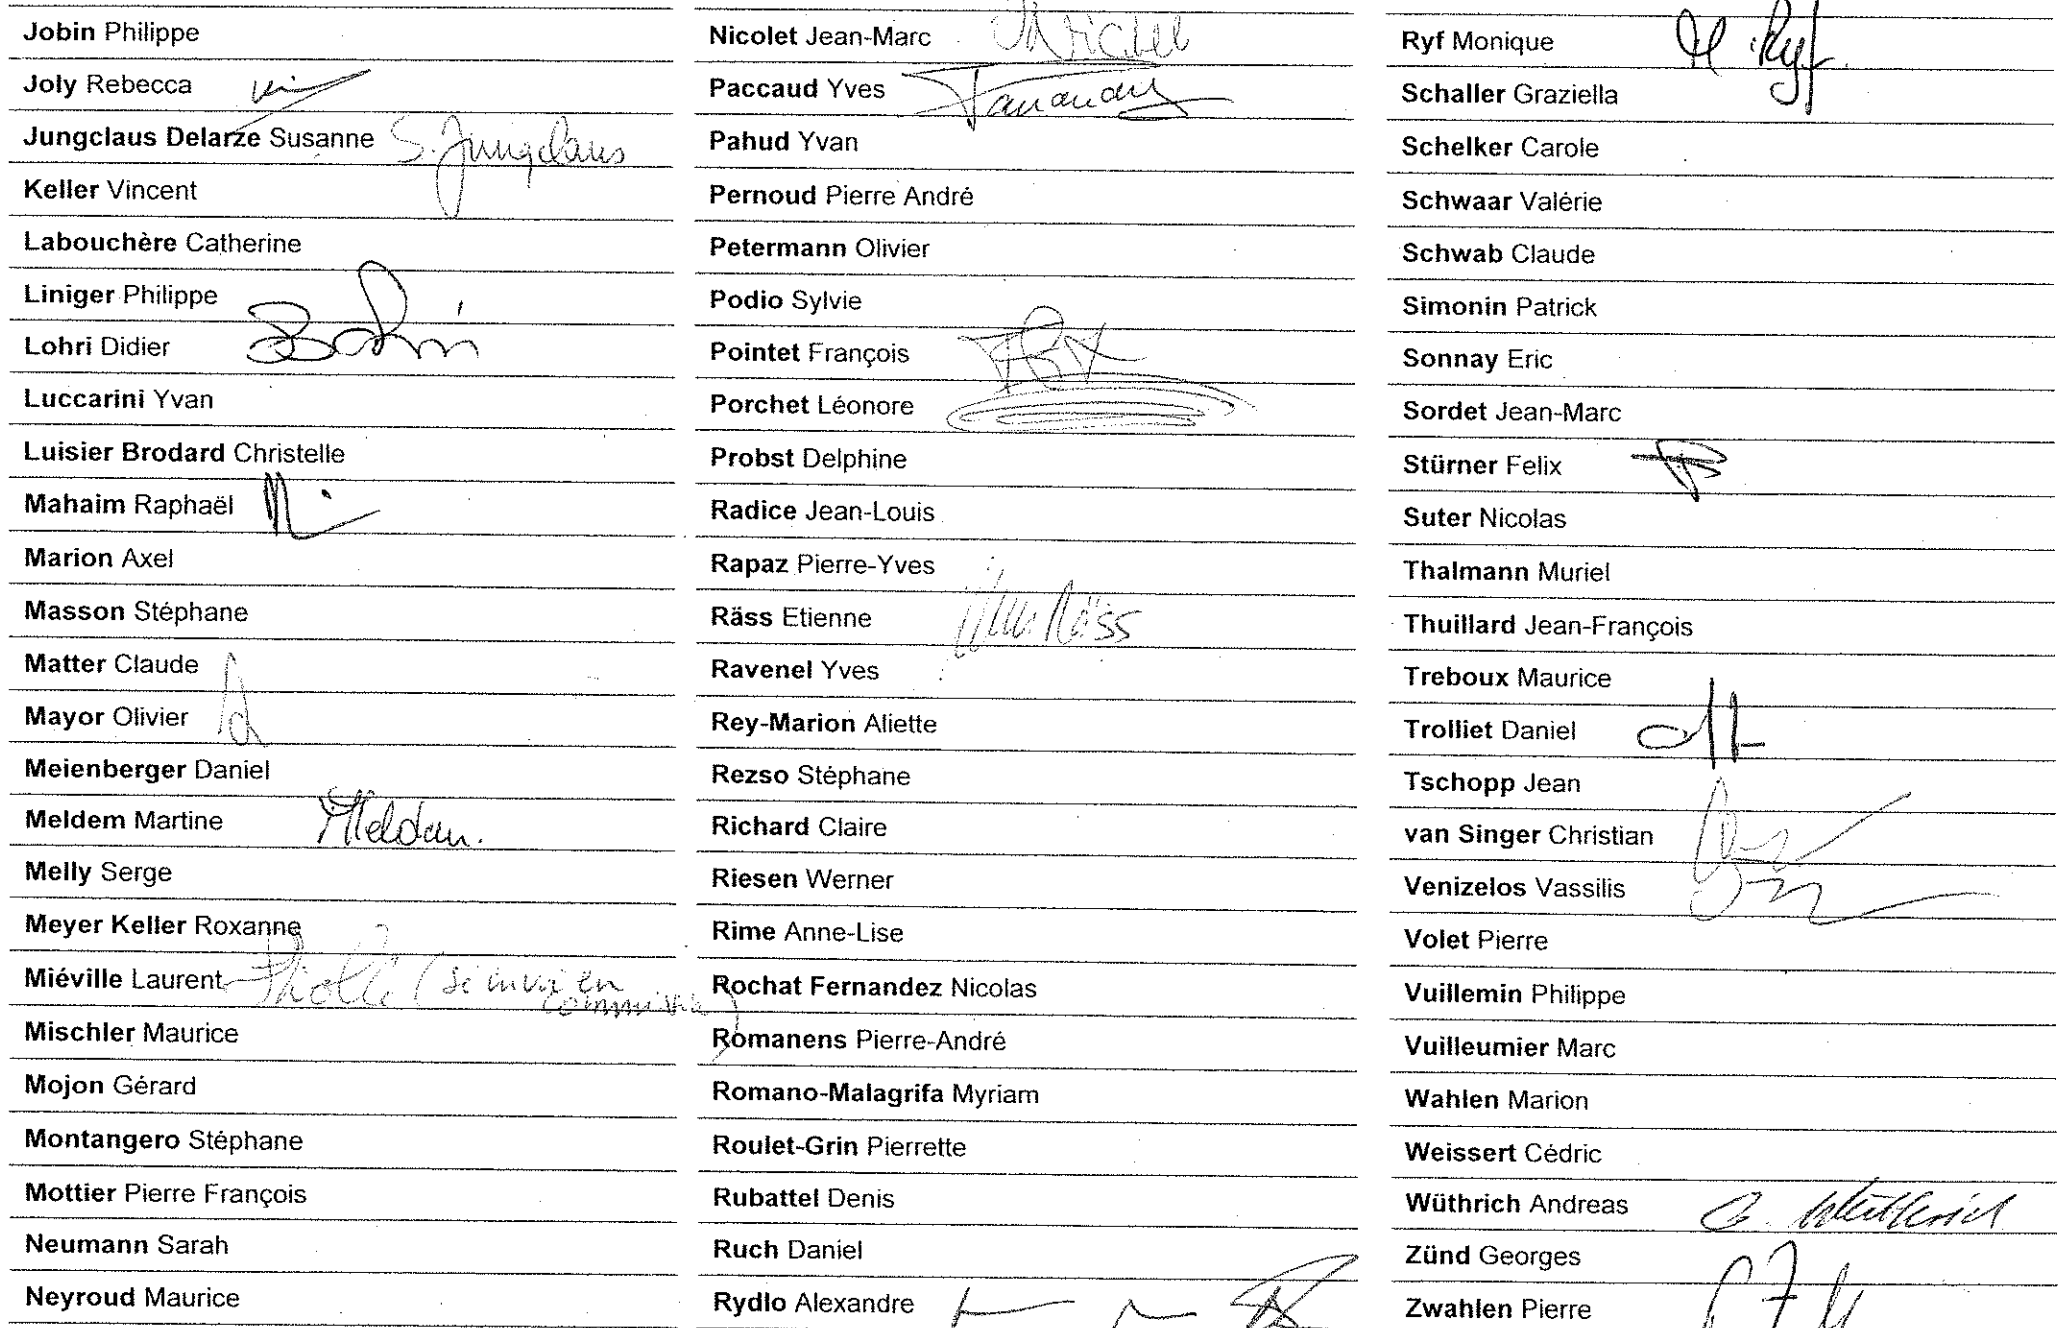 Jobin Philippe
Joly Rebecca
Jungclaus Delarze Susanne S. Jungclaus
Keller Vincent
Labouchère Catherine
Liniger Philippe
Lohri Didier
Luccarini Yvan
Luisier Brodard Christelle
Mahaim Raphaël
Marion Axel
Masson Stéphane
Matter Claude
Mayor Olivier
Meienberger Daniel
Meldem Martine Meldem.
Melly Serge
Meyer Keller Roxanne
Miéville Laurent
Mischler Maurice
Mojon Gérard
Montangero Stéphane
Mottier Pierre François
Neumann Sarah
Neyroud Maurice
Nicolet Jean-Marc
Paccaud Yves
Pahud Yvan
Pernoud Pierre André
Petermann Olivier
Podio Sylvie
Pointet François
Porchet Léonore
Probst Delphine
Radice Jean-Louis
Rapaz Pierre-Yves
Räss Etienne Räss
Ravenel Yves
Rey-Marion Aliette
Rezso Stéphane
Richard Claire
Riesen Werner
Rime Anne-Lise
Rochat Fernandez Nicolas
Romanens Pierre-André
Romano-Malagrifa Myriam
Roulet-Grin Pierrette
Rubattel Denis
Ruch Daniel
Rydlo Alexandre
Ryf Monique M. Ryf
Schaller Graziella
Schelker Carole
Schwaar Valérie
Schwab Claude
Simonin Patrick
Sonnay Eric
Sordet Jean-Marc
Stürner Felix
Suter Nicolas
Thalmann Muriel
Thuillard Jean-François
Treboux Maurice
Trolliet Daniel
Tschopp Jean
van Singer Christian
Venizelos Vassilis
Volet Pierre
Vuillemin Philippe
Vuilleumier Marc
Wahlen Marion
Weissert Cédric
Wüthrich Andreas A. Wüthrich
Zünd Georges
Zwahlen Pierre